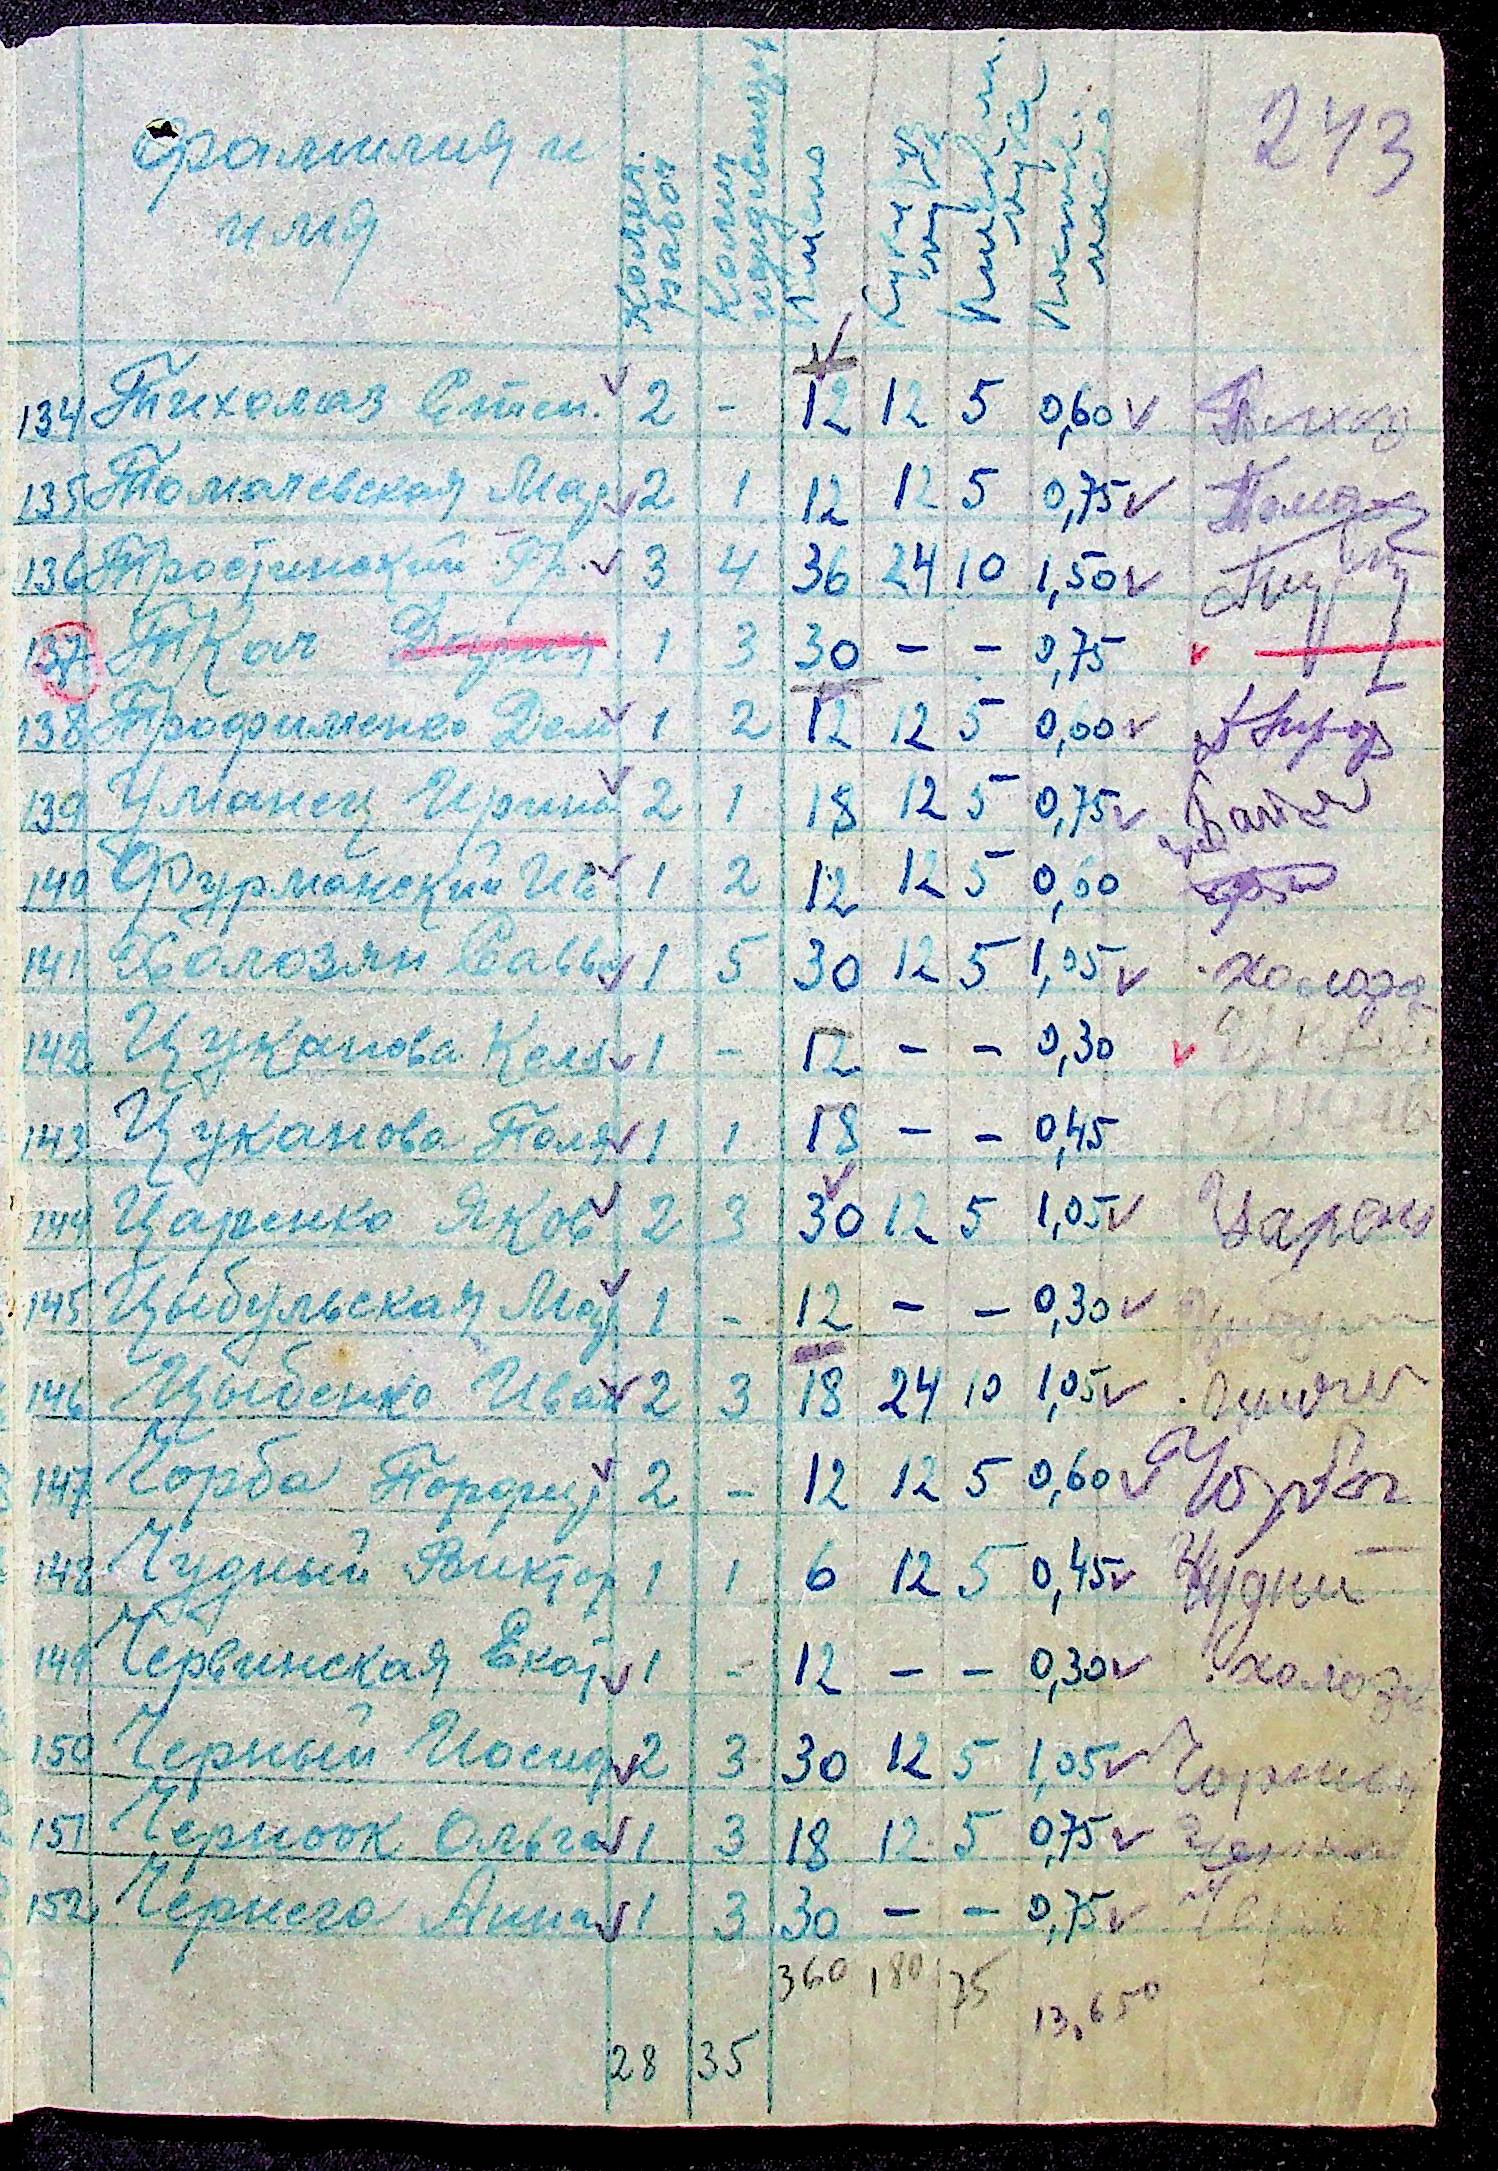 243
Фамилия и имя
Колич. работ
Колич. иждивенцев
Пшено
мука
мука
масло
134 Тихолаз Степ. 2 - 12 12 5 0,60
135 Томачевская Мар 2 1 12 12 5 0,75 Тома
136 Тростинский Гр. 3 4 36 24 10 1,50
137 Ткач 1 3 30 - - 0,75
138 Трофименко Дем 1 2 12 12 5 0,60
139 Уманец Ирина 2 1 18 12 5 0,75
140 Фурманский Ив 1 2 12 12 5 0,60
141 Холозян Савва 1 5 30 12 5 1,05
142 Цуканова Келя 1 - 12 - - 0,30
143 Цуканова Поля 1 1 18 - - 0,45
144 Царенко Яков 2 3 30 12 5 1,05 Царен
145 Цыбульская Мар 1 - 12 - - 0,30
146 Цыбенко Иван 2 3 18 24 10 1,05
147 Чорба Порфир 2 - 12 12 5 0,60 Чорба
148 Чудный Виктор 1 1 6 12 5 0,45 Чудний
149 Червинская Екат 1 - 12 - - 0,30
150 Черный Иосиф 2 3 30 12 5 1,05 Чорный
151 Черноок Ольга 1 3 18 12 5 0,75
152 Чернега Анна 1 3 30 - - 0,75
360 180 75 13,650
28 35